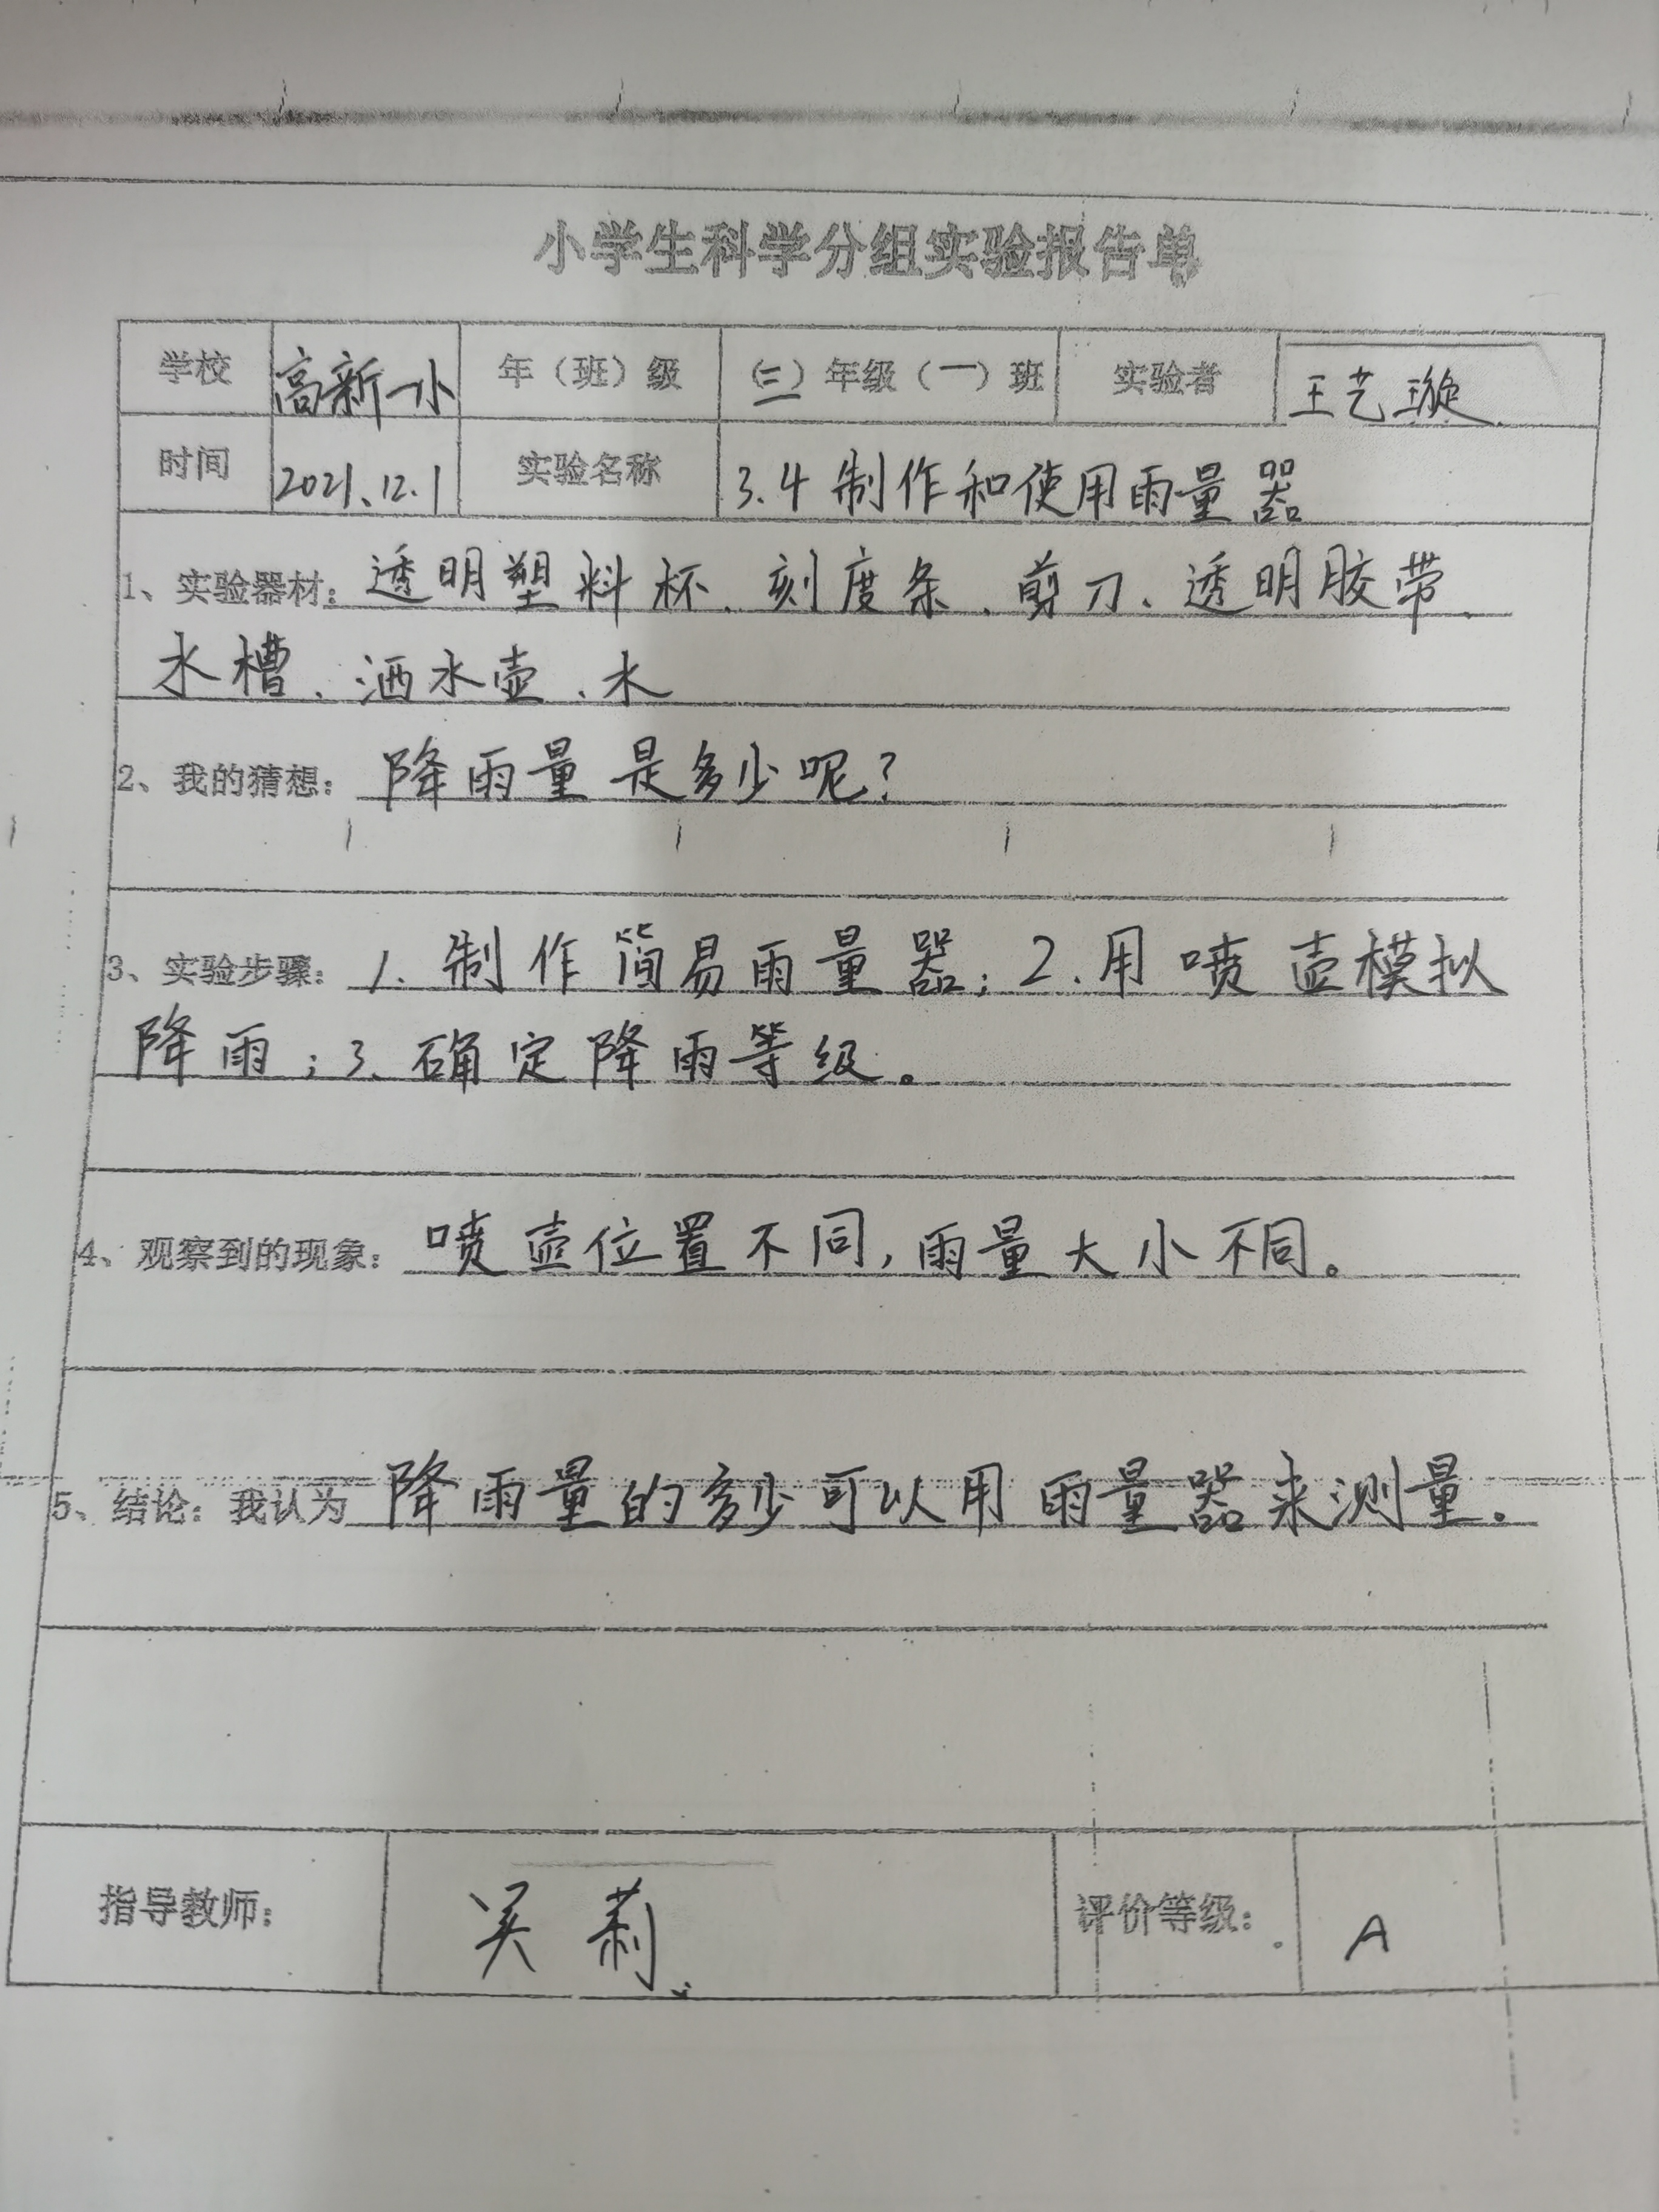 小学生科学分组实验报告单
学校 高新一小 年（班）级 （三）年级（一）班 实验者 王艺璇
时间 2021、12.1 实验名称 3.4 制作和使用雨量器
1、实验器材：透明塑料杯、刻度条、剪刀、透明胶带、
水槽、洒水壶、水
2、我的猜想：降雨量是多少呢？
3、实验步骤：1. 制作简易雨量器；2. 用喷壶模拟
降雨；3、确定降雨等级。
4、观察到的现象：喷壶位置不同，雨量大小不同。
5、结论：我认为 降雨量的多少可以用雨量器来测量。
指导教师： 吴莉 评价等级： A